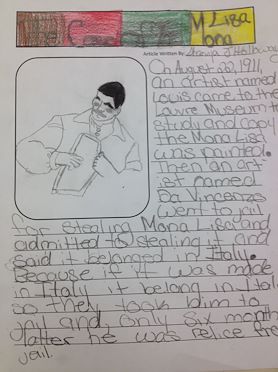 The Case M Lisa
ona
Article Written By:
On August 22, 1911,
an artist named
Louis came to the
Lauvre Museum to
study and copy
the Mona Lisa
was painted.
Then an art
ist named
Da Vincenzo
went to jail
for stealing Mona Lisa and
admitted to stealing it and
said it belonged in Italy.
Because if it was made
in Italy it belong in Ital
so they took him to
jail and, only six month
latter he was relice fro
jail.